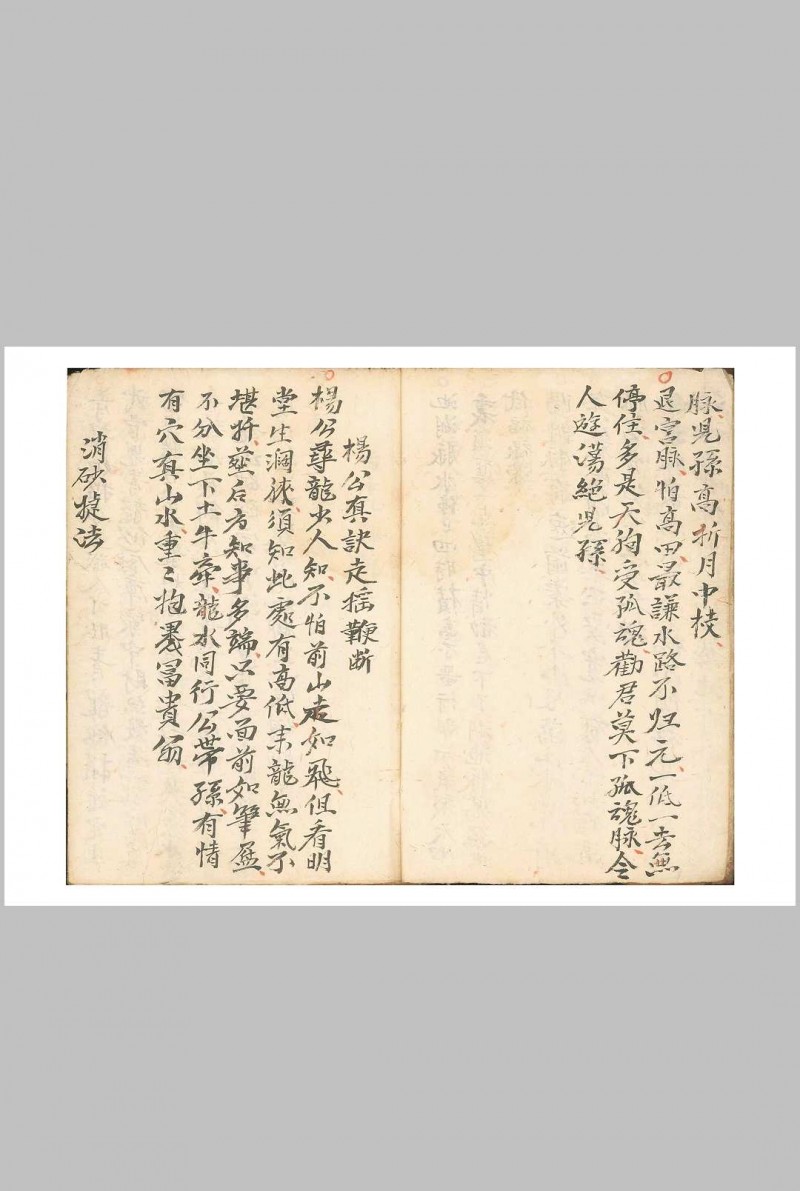 脉児孫高折月中枝
退宮脉怕高田最謙水路不归元一低一去無
停住多是天狗受孤魂勸君莫下孤魂脉令
人遊蕩絶児孫
楊公真訣走摇鞭断
楊公尋龍少人知不怕前山走如飛但看明
堂生濶狹須知此處有高低来龍無氣不
堪扦葬后方知事多端只要面前如筆
不分坐下土牛奔龍水同行公帶孫有情
有穴真山水重〻抱裹冨貴翁
消砂捷法